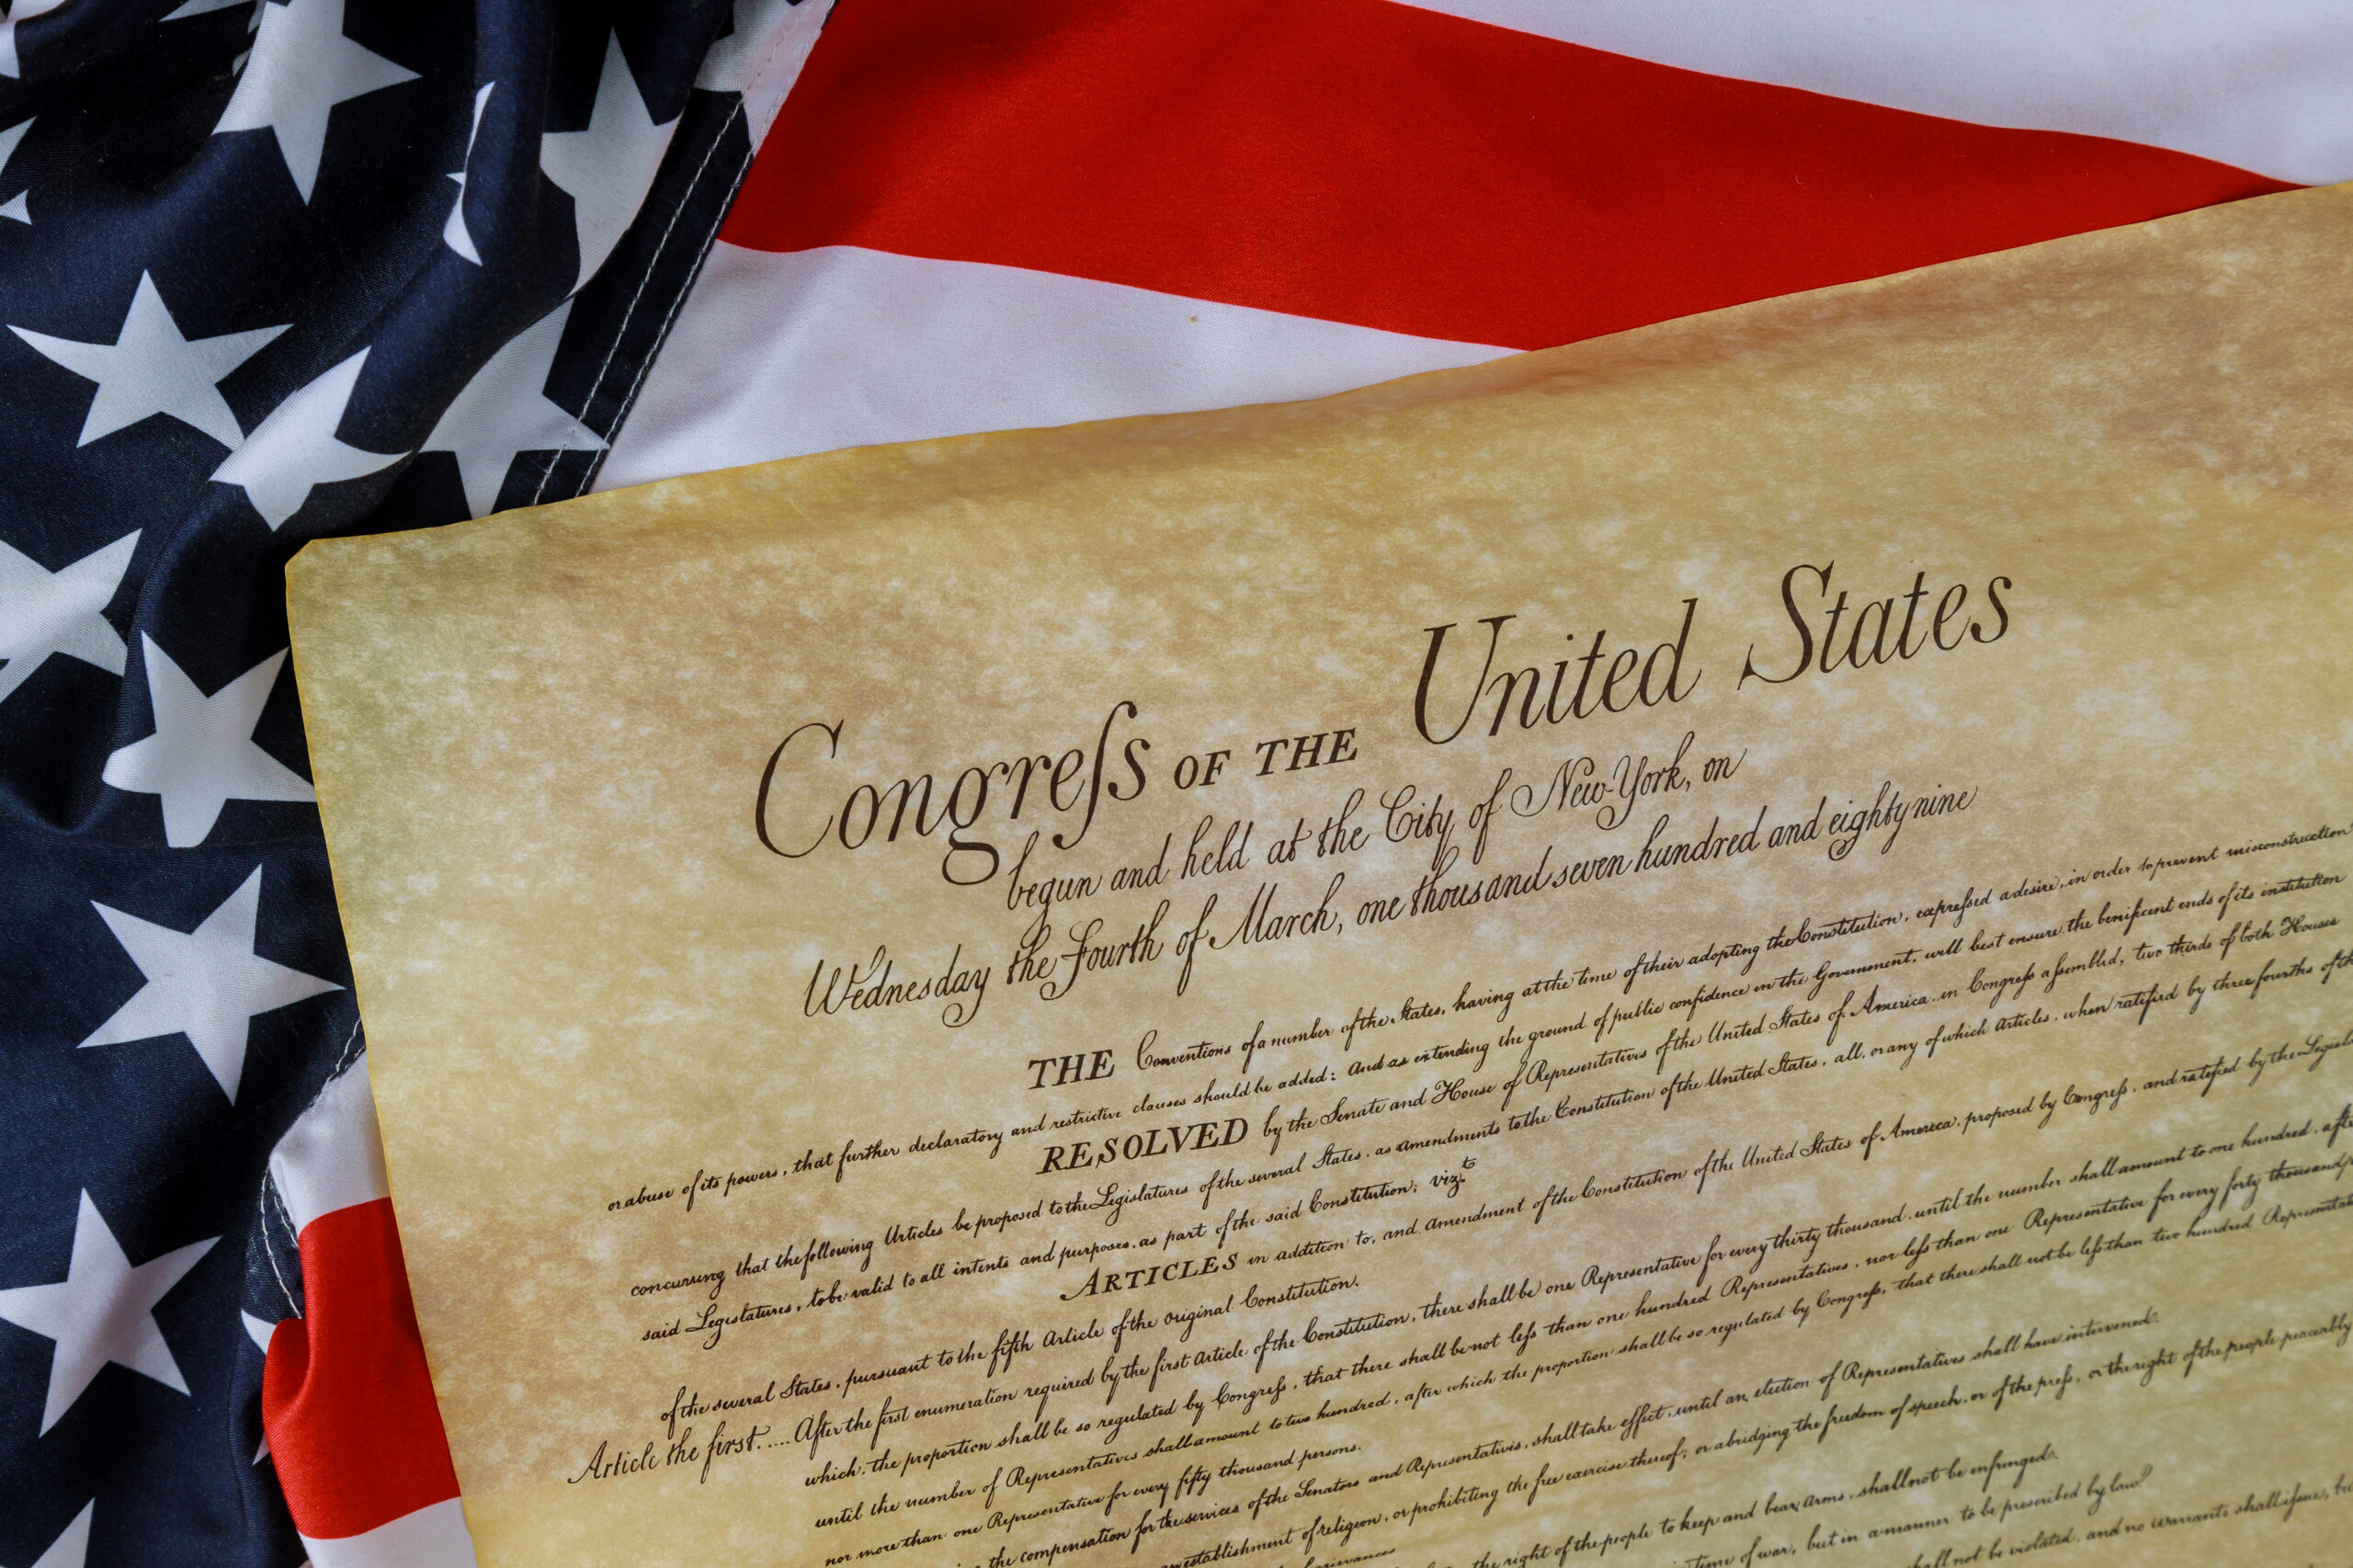 Congreſs OF THE United States
begun and held at the City of New-York, on
Wednesday the Fourth of March, one thousand seven hundred and eighty nine
THE Conventions of a number of the States, having at the time of their adopting the Constitution, expreſsed a desire, in order to prevent misconstruction
or abuse of its powers, that further declaratory and restrictive clauses should be added: And as extending the ground of public confidence in the Government, will best ensure the benificent ends of its institution
RESOLVED by the Senate and House of Representatives of the United States of America, in Congreſs aſsembled, two thirds of both Houses
concurring that the following Articles be proposed to the Legislatures of the several States, as Amendments to the Constitution of the United States, all, or any of which Articles, when ratified by three fourths of the
said Legislatures, to be valid to all intents and purposes, as part of the said Constitution; vizt.
ARTICLES in addition to, and Amendment of the Constitution of the United States of America, proposed by Congreſs, and ratified by the
of the several States, pursuant to the fifth Article of the original Constitution.
Article the first..... After the first enumeration required by the first Article of the Constitution, there shall be one Representative for every thirty thousand, until the number shall amount to one hundred, after
which, the proportion shall be so regulated by Congreſs, that there shall be not leſs than one hundred Representatives, nor leſs than one Representative for every forty thousand
until the number of Representatives shall amount to two hundred, after which the proportion shall be so regulated by Congreſs, that there shall not be leſs than two hundred
nor more than one Representative for every fifty thousand persons.
the compensation for the services of the Senators and Representatives, shall take effect, until an election of Representatives shall have intervened.
establishment of religion, or prohibiting the free exercise thereof; or abridging the freedom of speech, or of the preſs, or the right of the people peaceably
grievances
the right of the people to keep and bear Arms, shall not be infringed.
time of war, but in a manner to be prescribed by law.
shall not be violated, and no warrants shall iſsue,